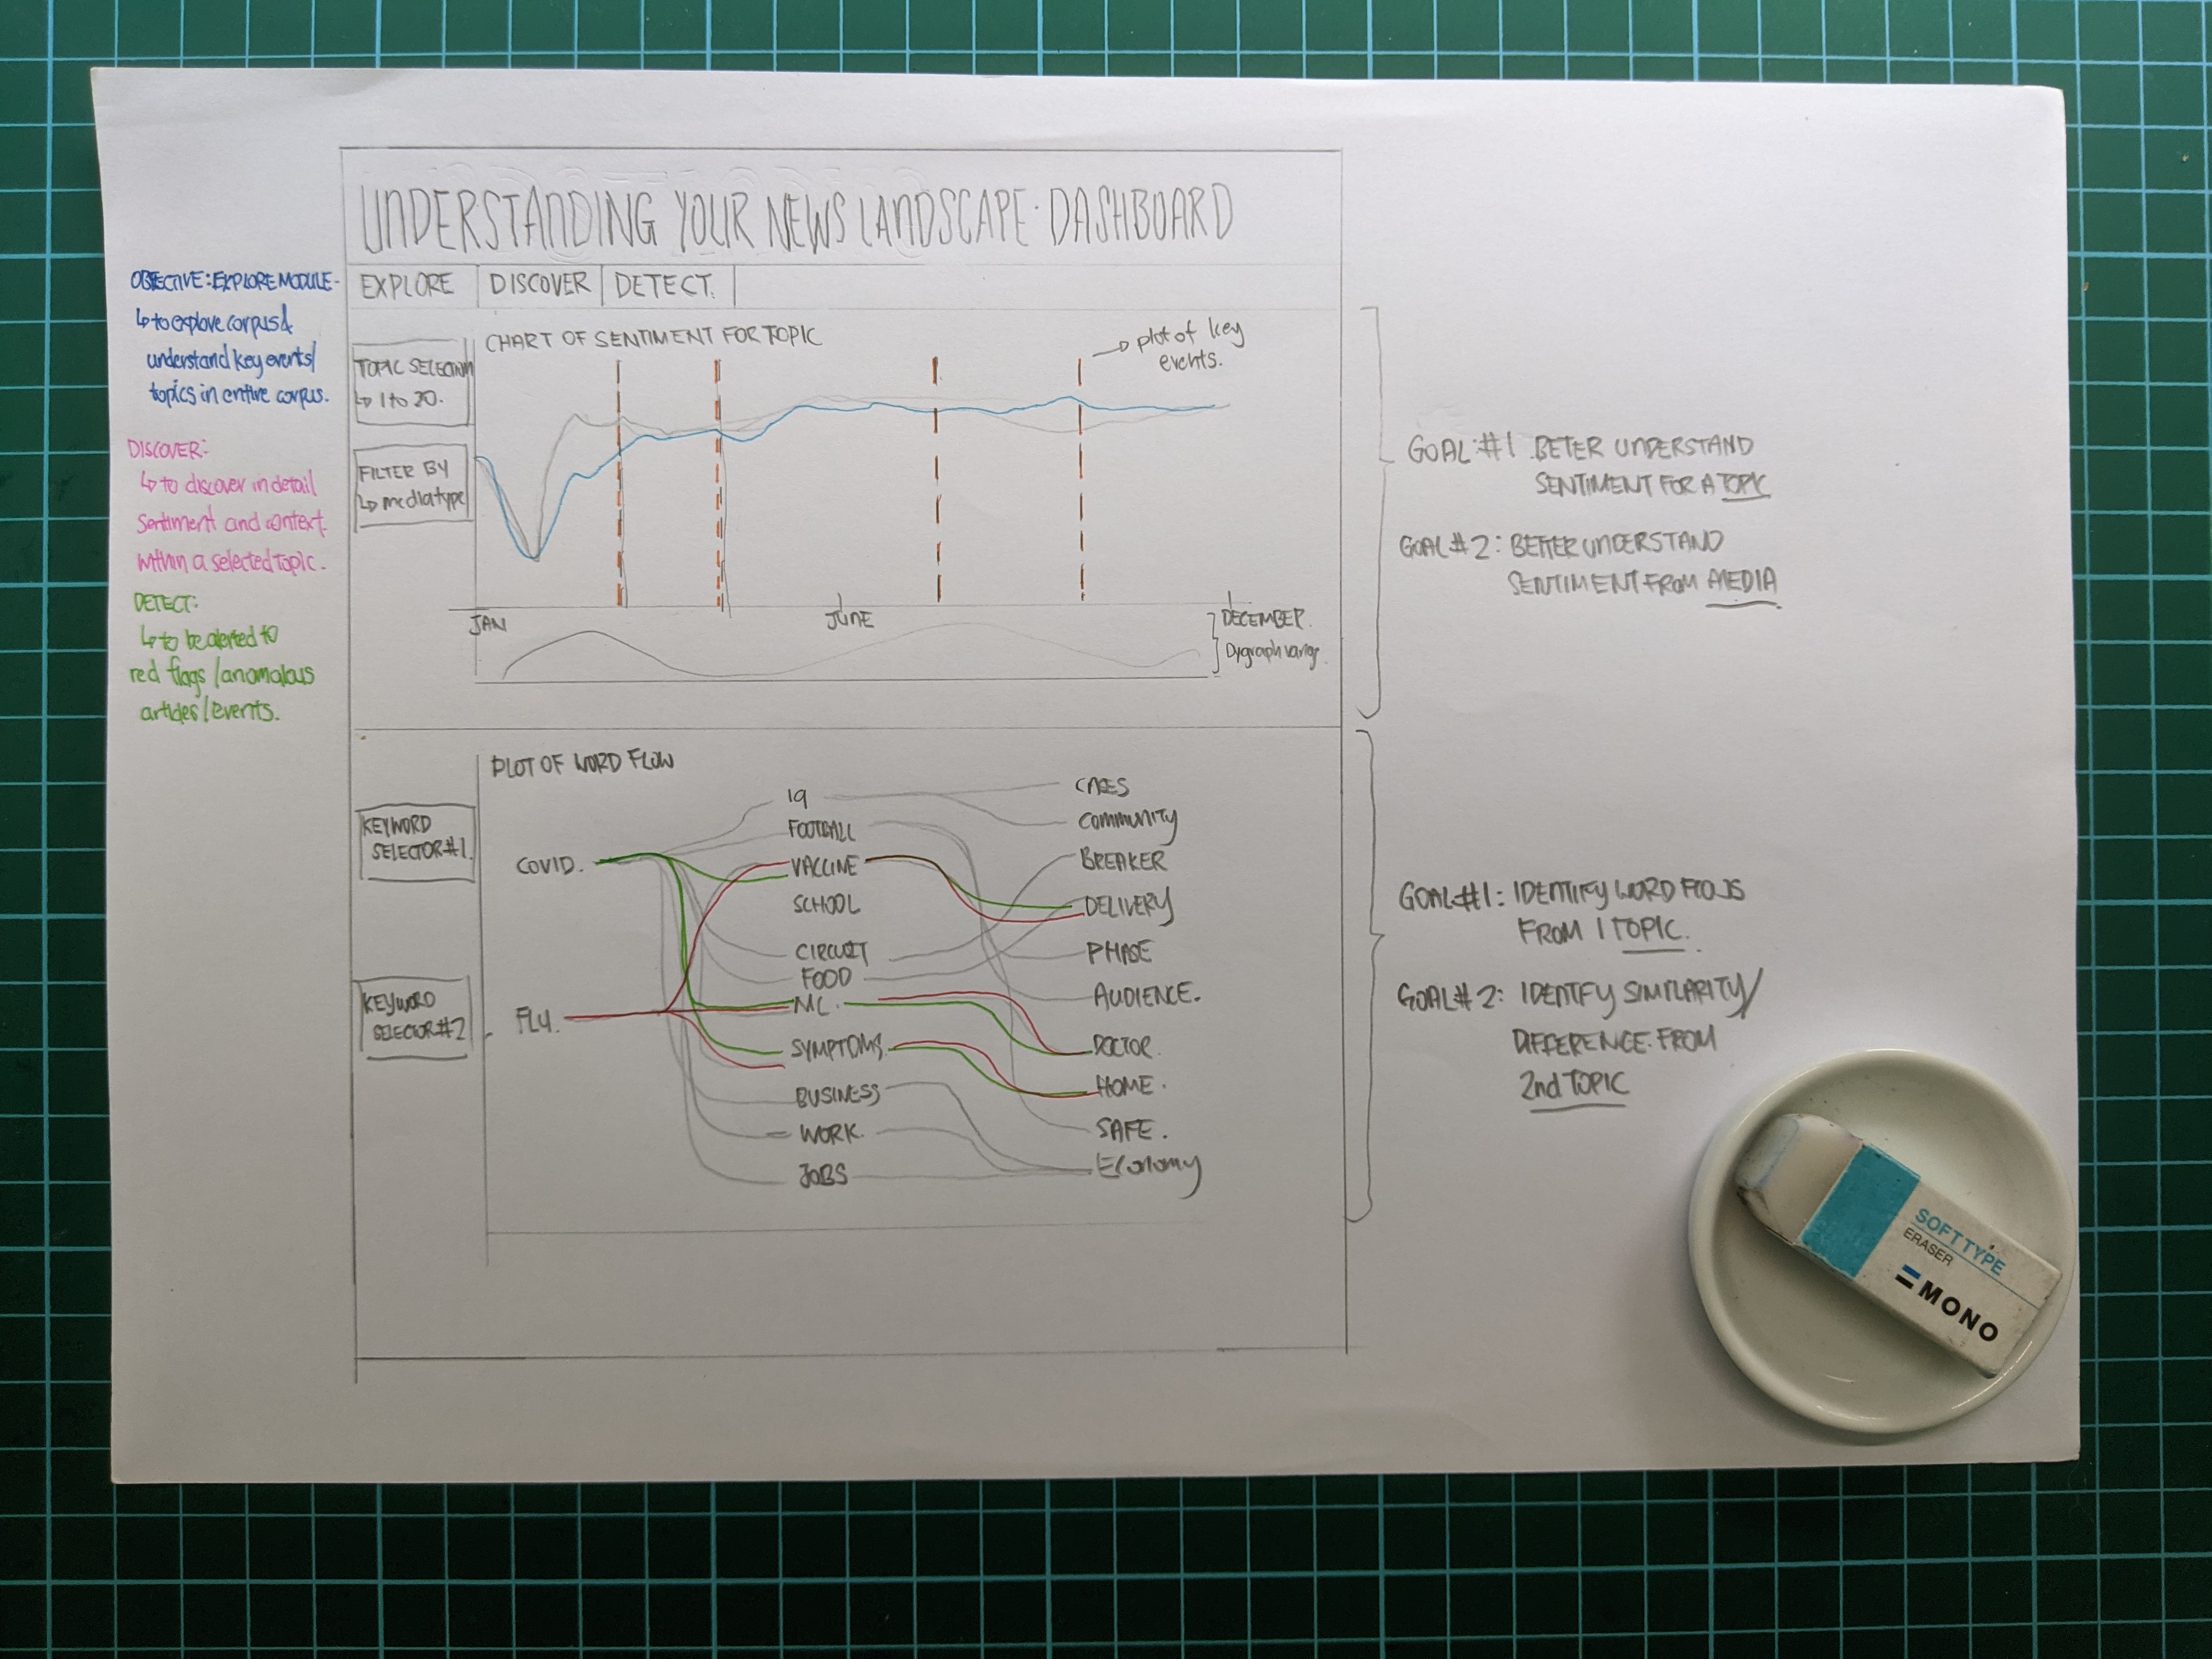 UNDERSTANDING YOUR NEWS LANDSCAPE · DASHBOARD
EXPLORE DISCOVER DETECT.
OBJECTIVE: EXPLORE MODULE -
↳ to explore corpus &
understand key events/
topics in entire corpus.
DISCOVER:
↳ to discover in detail
sentiment and context
within a selected topic.
DETECT:
↳ to be alerted to
red flags / anomalous
articles / events.
CHART OF SENTIMENT FOR TOPIC
TOPIC SELECTION
↳ 1 to 20.
FILTER BY
↳ media type
→ plot of key
events.
JAN
JUNE
DECEMBER.
Dygraph
GOAL: #1 BETER UNDERSTAND
SENTIMENT FOR A TOPIC
GOAL #2: BETTER UNDERSTAND
SENTIMENT FROM MEDIA
PLOT OF WORD FLOW
KEYWORD
SELECTOR #1.
KEYWORD
SELECTOR #2
COVID.
FLU.
19
FOOTBALL
VACCINE
SCHOOL
CIRCUIT
FOOD
MC.
SYMPTOMS.
BUSINESS
WORK.
JOBS
CASES
COMMUNITY
BREAKER
DELIVERY
PHASE
AUDIENCE.
DOCTOR.
HOME.
SAFE.
Economy
GOAL #1: IDENTIFY WORD FLOWS
FROM 1 TOPIC.
GOAL #2: IDENTIFY SIMILARITY/
DIFFERENCE FROM
2nd TOPIC
SOFT TYPE
ERASER
MONO